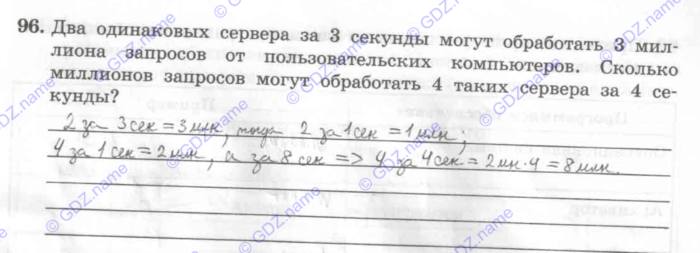 96. Два одинаковых сервера за 3 секунды могут обработать 3 мил-
лиона запросов от пользовательских компьютеров. Сколько
миллионов запросов могут обработать 4 таких сервера за 4 се-
кунды?
2 за 3 сек = 3 млн, тогда 2 за 1 сек = 1 млн,
4 за 1 сек = 2 млн, а за 8 сек => 4 за 4 сек = 2 мн · 4 = 8 млн.
© GDZ.name